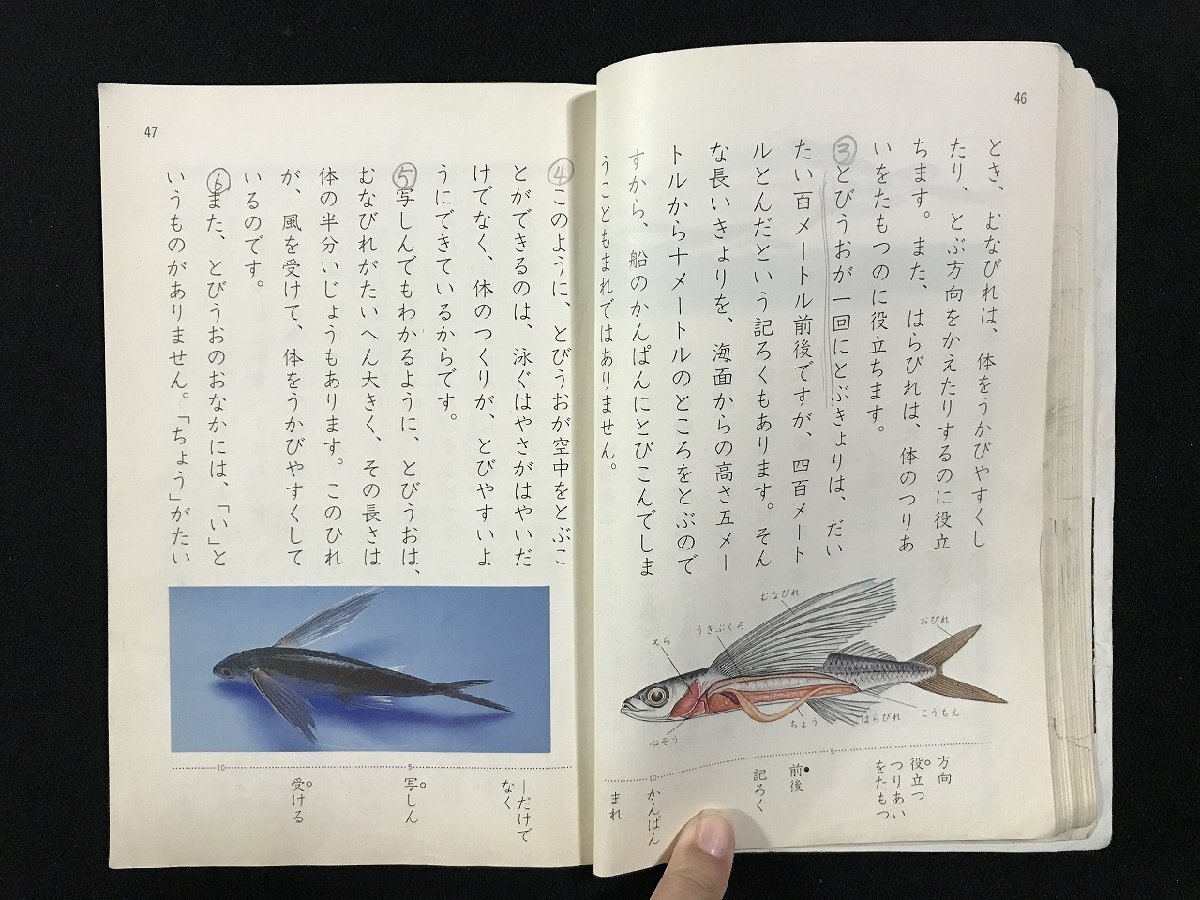 46
とき、むなびれは、体をうかびやすくし
たり、とぶ方向をかえたりするのに役立
ちます。また、はらびれは、体のつりあ
いをたもつのに役立ちます。
③とびうおが一回にとぶきょりは、だい
たい百メートル前後ですが、四百メート
ルとんだという記ろくもあります。そん
な長いきょりを、海面からの高さ五メー
トルから十メートルのところをとぶので
すから、船のかんぱんにとびこんでしま
うこともまれではありません。
むなびれ
うきぶくろ
えら
おびれ
心ぞう
ちょう
はらびれ
こうもん
5
10
方向
役立つ
つりあい
をたもつ
前後
記ろく
かんぱん
まれ
47
④このように、とびうおが空中をとぶこ
とができるのは、泳ぐはやさがはやいだ
けでなく、体のつくりが、とびやすいよ
うにできているからです。
⑤写しんでもわかるように、とびうおは、
むなびれがたいへん大きく、その長さは
体の半分いじょうもあります。このひれ
が、風を受けて、体をうかびやすくして
いるのです。
⑥また、とびうおのおなかには、「い」と
いうものがありません。「ちょう」がたい
5
10
―だけで
なく
写しん
受ける